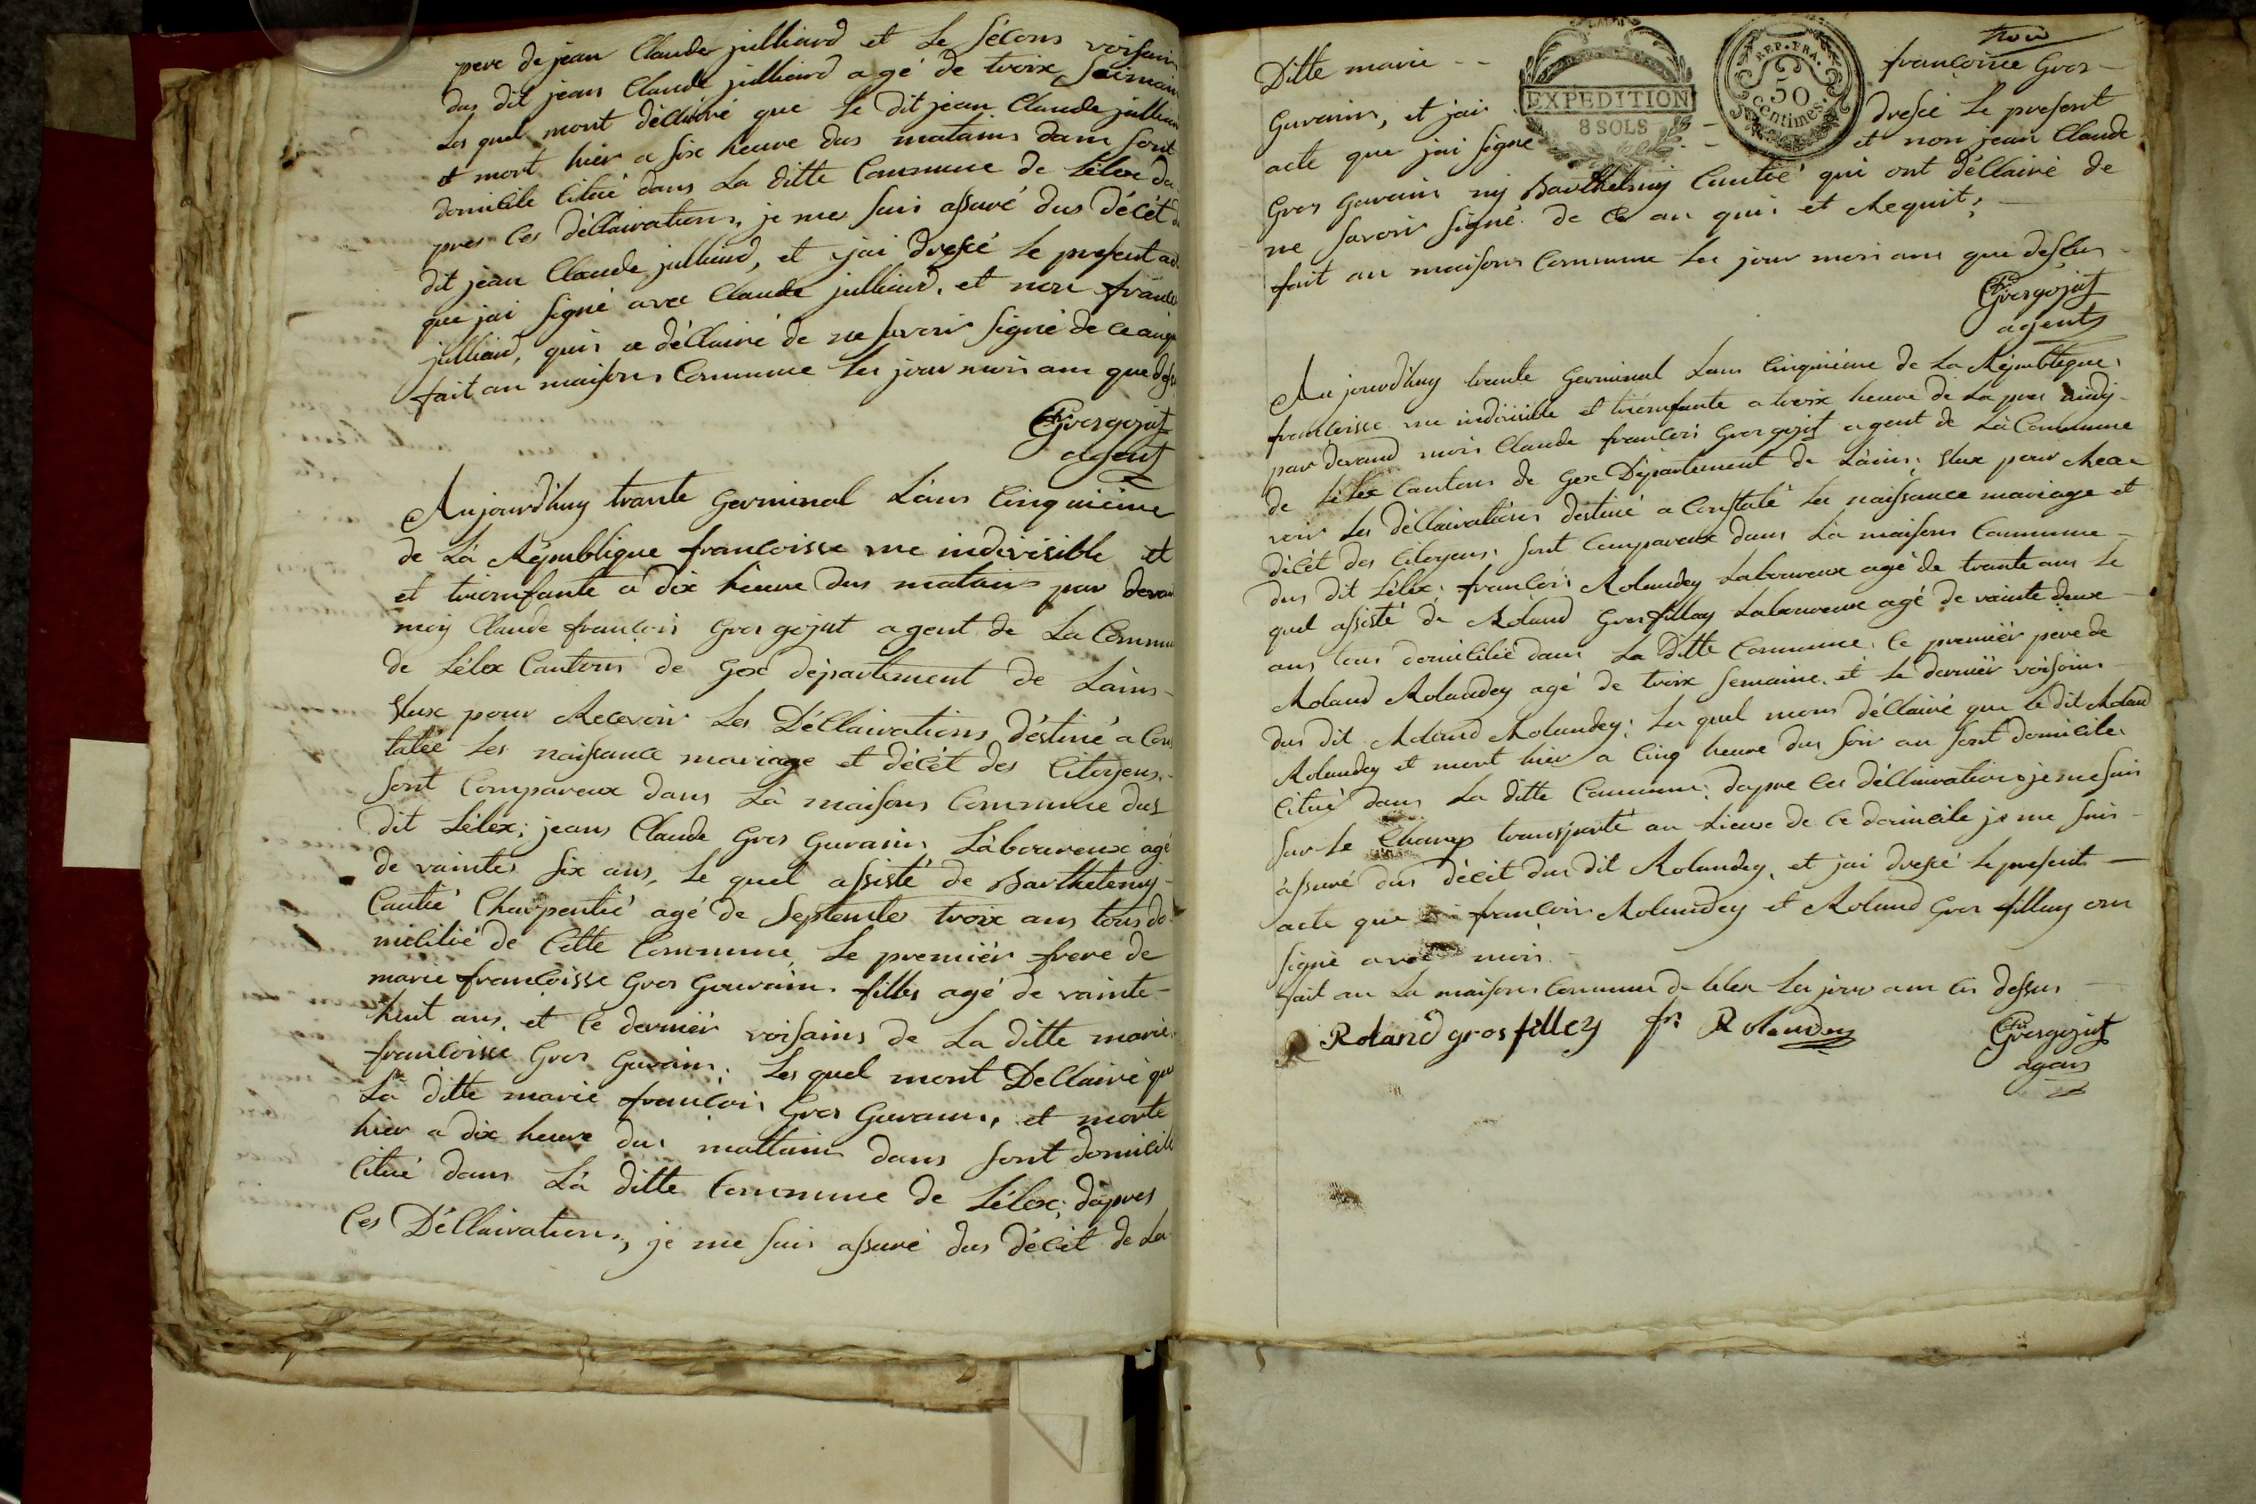 pere de jean Claude julliard et le sécons voisain
dus dit jean Claude julliard agé de troix semain
les quel mont décllairé que le dit jean Claude julliar
et mort hier a six heure dus matains dans sont
domicile citué dans la ditte Commune de Lélex da
pres ces décllairations, je me suis assuré dus décét du
dit jean Claude julliard, et jai dressé le present act
que jai signé avec Claude julliard, et non francois
julliard, quis a décllairé de ne savoir signé de ce anquis
fait an maisons Commune les jour mois ans que dess
Cfr Grosgojat
agent
Aujourdhuy trante Germinal Láns Cinquiéme
de Lá République francoisse une indivisible et
et triomfante a dix héure dus matains par devan
moy Claude francois Gros gojat agent de La Commu
de Lélex Cantons de Gex département de Láins
élux pour Recevoir Les Décllairations déstiné a Cons
tatée Les naissance mariage et décét des Citoyens
sont Comparaux dans Lá maisons Commune dus
dit Lélex; jeans Claude Gros Gurains Láboureux agé
de vaintes six ans, le quel assisté de Barthelemy
Cautié Charpentié agé de septentes troix ans tous do
micilié de Cette Commune, le premiér frere de
marie francoisse Gros Gouvain filles agé de vainte
huit ans, et le derniér voisains de La ditte marie
francoisse Gros Gurain; Les quel mont Decllairé que
Lá ditte marie francois Gros Gurains, et morte
hier a dix heure dus mattains dans sont domicile
citué dans Lá ditte Commune de Lélex; dápres
Ces Décllairations, je me suis assuré dus décét de La
trois
Ditte marie -- francoisse Gros
EXPEDITION
8 SOLS
REP. FRA.
50
centimes.
Gurains, et jai dressé le present
acte que jai signé -- et non jean Claude
Gros Gurain nÿ Barthelmiy Cautié qui ont décllairé de
ne savoir signé de ce an quis et Requit;
fait an maisons Commune les jour mois ans que dessus
Cfr Grosgojat
agents
Aujourdhuy trante Germinal Lans Cinquiéme de La République
francoisse une indivisible et triomfante a troix heure de La pres midy
par devand mois Claude francois Gros gojat agent de Lá Commune
de Lélex Cantons de Gex Département de Láins; élux pour Rece
voir Les décllairations destiné a Constaté les naissance mariage et
décét des Citoyens; sont Comparaux dans Lá maisons Commune
dus dit Lélex; francois Rolandey Laboureux agé de trante ans Le
quel assisté de Roland Grosfillay Laboureux agé de vainte deux
ans tous domicilié dans La Ditte Commune; le premiér pere de
Roland Rolandey agé de troix semaine, et le derniér voisains
dus dit Roland Rolandey; Les quel mons décllairé que le dit Roland
Rolandey et mort hier a Cinq heure dus soir an sont domicile
citué dans La ditte Commune; dapre ces décllairations je me suis
sur le Champ transporté au Lieux de ce domicile je me suis
ássuré dus décét dus dit Rolandey, et jai dressé le present
acte que francois Rolandey et Roland Gros fillay ons
signé avec mois
fait an La maisons Commune de lelex les jour ans cis dessus
Roland grosfilley fr Rolandey Cfr Grosgojat
agans